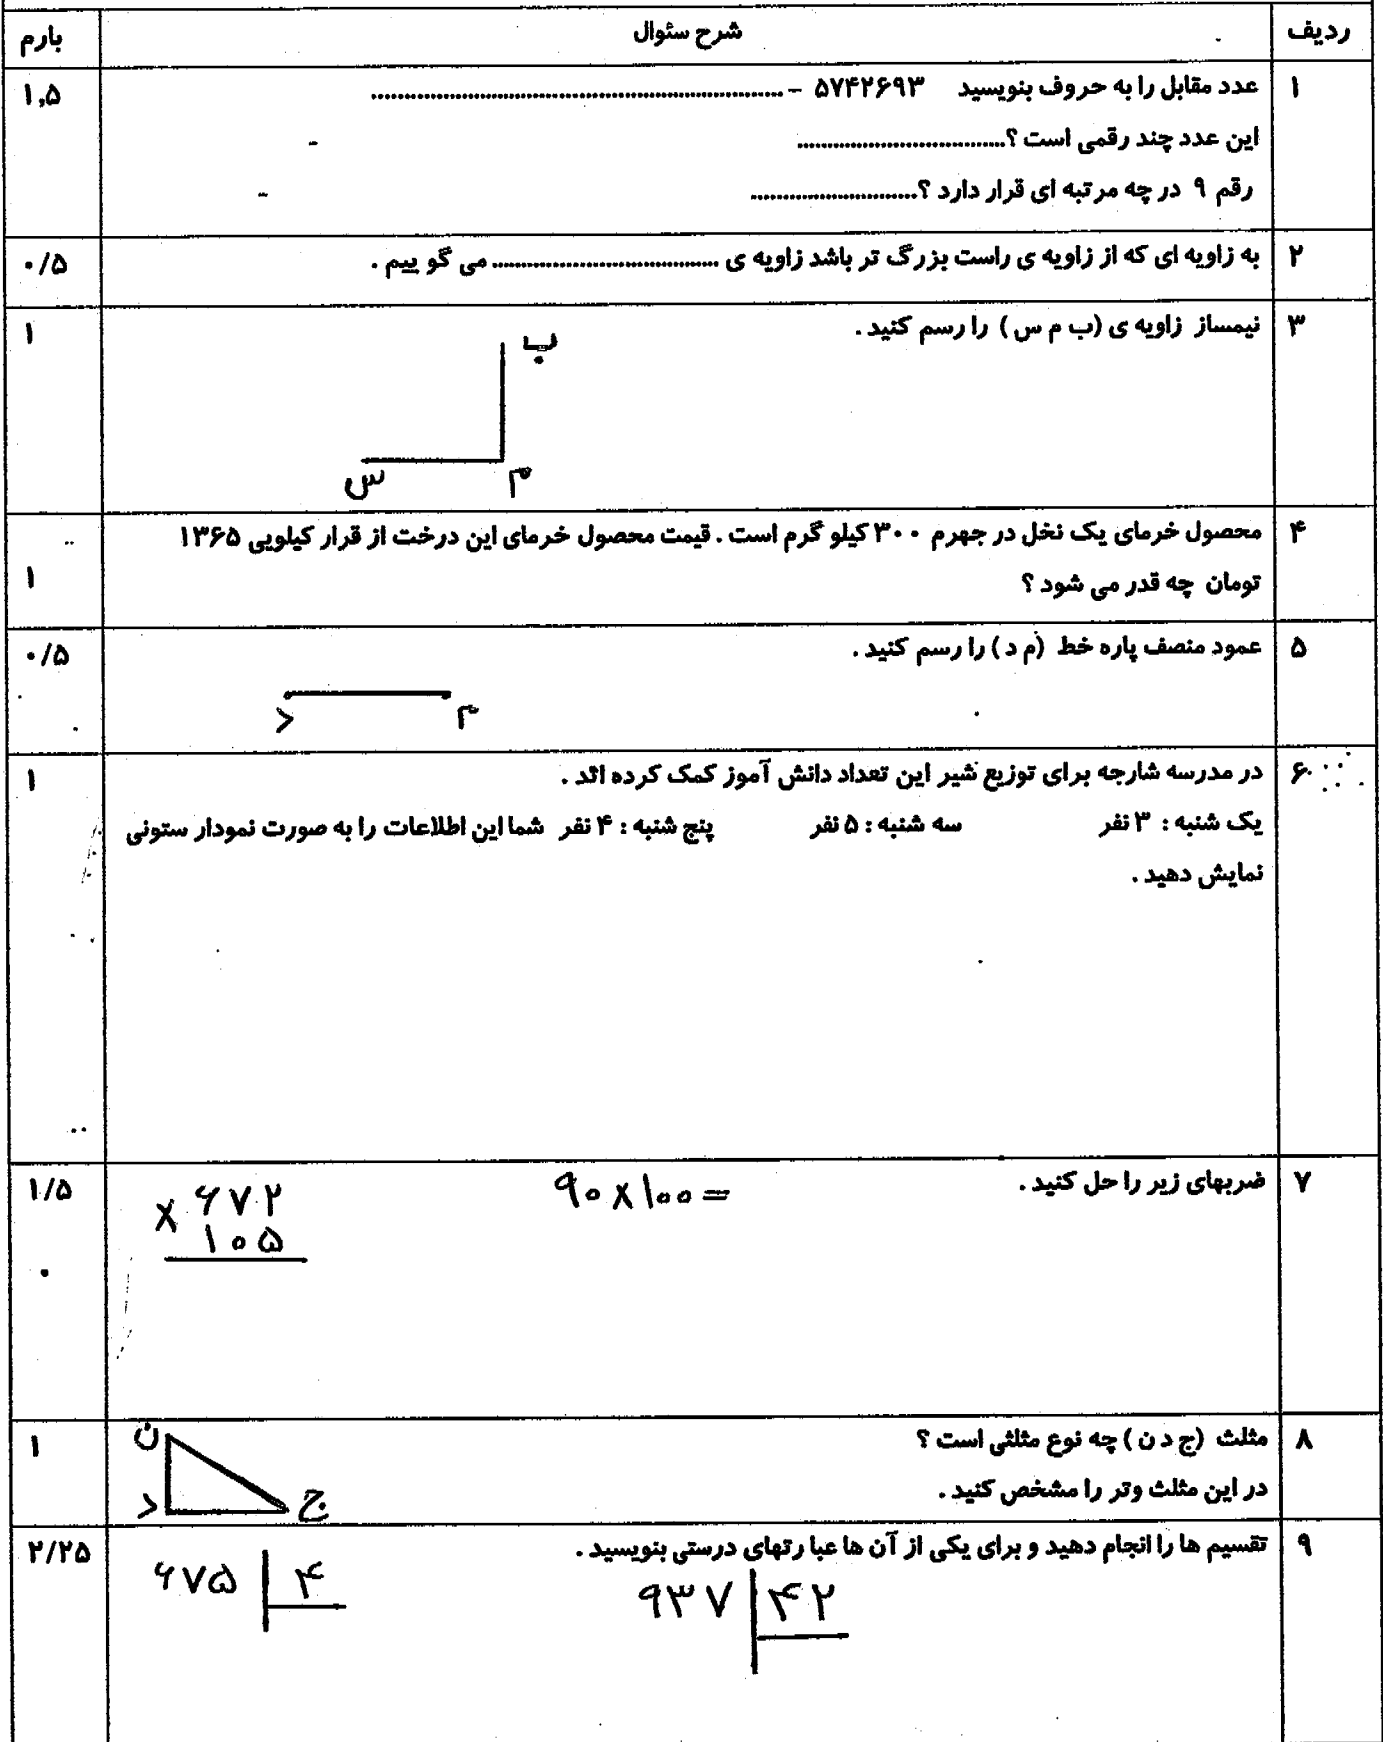 ردیف شرح سئوال بارم
۱ عدد مقابل را به حروف بنویسید ۵۷۴۲۶۹۳ – ........................................ ۱,۵
این عدد چند رقمی است ؟........................
رقم ۹ در چه مرتبه ای قرار دارد ؟........................
۲ به زاویه ای که از زاویه ی راست بزرگ تر باشد زاویه ی ........................ می گو ییم . ۰/۵
۳ نیمساز زاویه ی (ب م س ) را رسم کنید . ۱
ب
س م
۴ محصول خرمای یک نخل در جهرم ۳۰۰ کیلو گرم است . قیمت محصول خرمای این درخت از قرار کیلویی ۱۳۶۵
تومان چه قدر می شود ؟ ۱
۵ عمود منصف پاره خط (م د ) را رسم کنید . ۰/۵
م د
۶ در مدرسه شارجه برای توزیع شیر این تعداد دانش آموز کمک کرده اند . ۱
یک شنبه : ۳ نفر سه شنبه : ۵ نفر پنج شنبه : ۴ نفر شما این اطلاعات را به صورت نمودار ستونی
نمایش دهید .
۷ ضربهای زیر را حل کنید . ۱/۵
۹۰ × ۱۰۰ =
× ۶۷۲
۱۰۵
۸ مثلث (ج د ن ) چه نوع مثلثی است ؟ ۱
در این مثلث وتر را مشخص کنید .
ن
د ج
۹ تقسیم ها را انجام دهید و برای یکی از آن ها عبا رتهای درستی بنویسید . ۲/۲۵
۹۳۷ | ۴۲
۶۷۵ | ۴